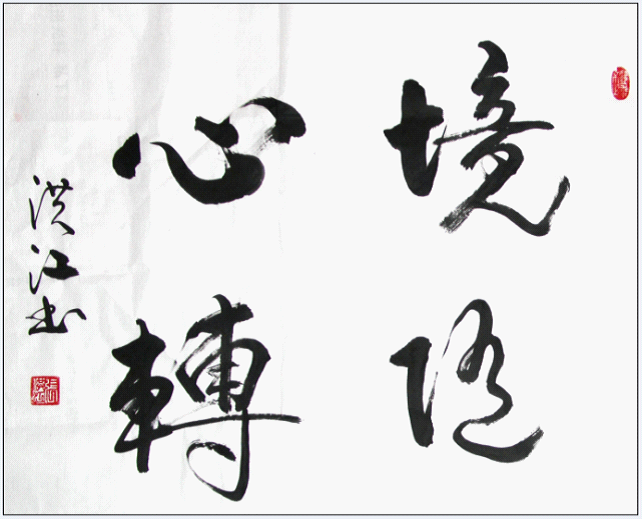 境随
心轉
洪江书